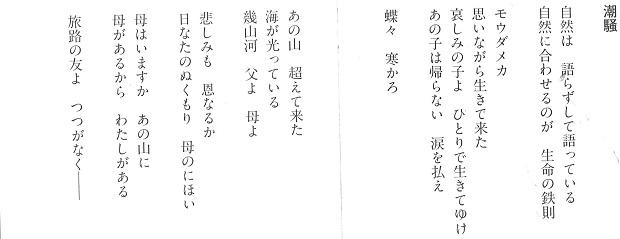 潮騒
自然は　語らずして語っている
自然に合わせるのが　生命の鉄則
モウダメカ
思いながら生きて来た
哀しみの子よ　ひとりで生きてゆけ
あの子は帰らない　涙を払え
蝶々　寒かろ
あの山　超えて来た
海が光っている
幾山河　父よ　母よ
悲しみも　恩なるか
日なたのぬくもり　母のにほい
母はいますか　あの山に
母があるから　わたしがある
旅路の友よ　つつがなく――